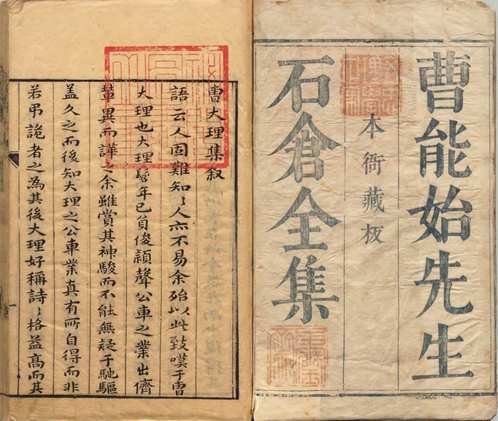 曹能始先生
本衙藏板
石倉全集
曹大理集叙
語云人固難知〻人亦不易余殆以此致嘆于曹
大理也大理髫年已負俊穎聲公車之業出儕
輩異而譁之余雖賞其神駿而不能無疑于馳驅
盖久之而後知大理之公車業真有所自得而非
若弔詭者之為其後大理好稱詩〻格益高而其